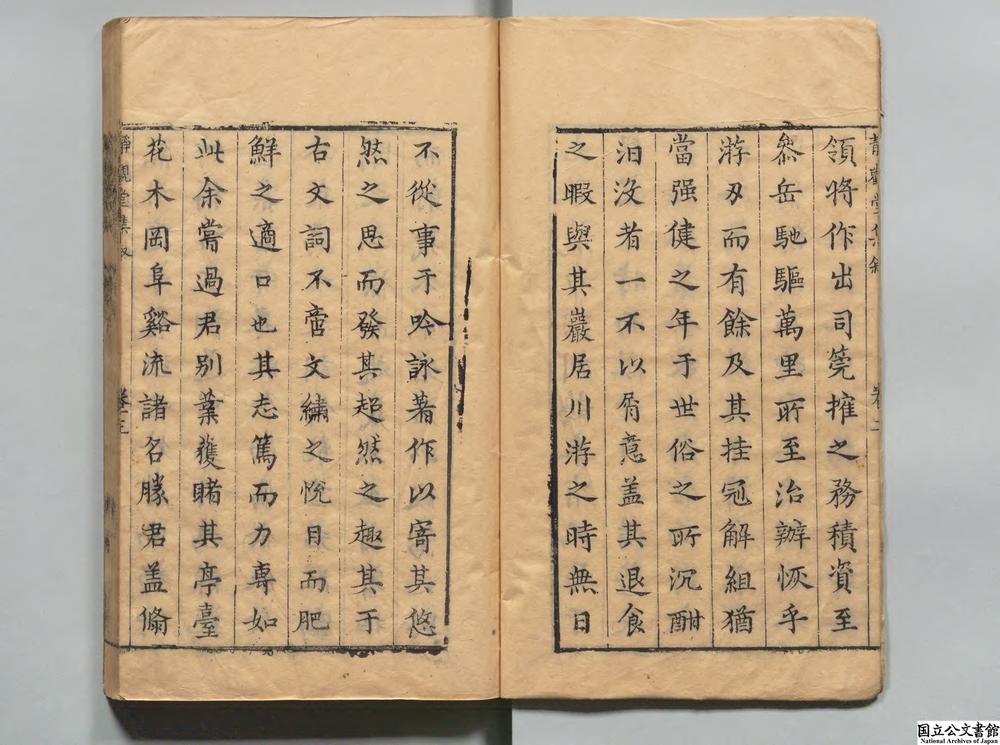 領將作出司筦搉之務積資至
叅岳馳驅萬里所至治辦恢乎
游刃而有餘及其挂冠解組猶
當强健之年于世俗之所沉酣
汨没者一不以屑意盖其退食
之暇與其巖居川游之時無日
不從事于吟詠著作以寄其悠
然之思而發其超然之趣其于
古文詞不啻文繡之悅目而肥
鮮之適口也其志篤而力專如
此余嘗過君别業獲睹其亭臺
花木岡阜谿流諸名勝君盖脩
靜觀堂集叙
卷二
国立公文書館
National Archives of Japan